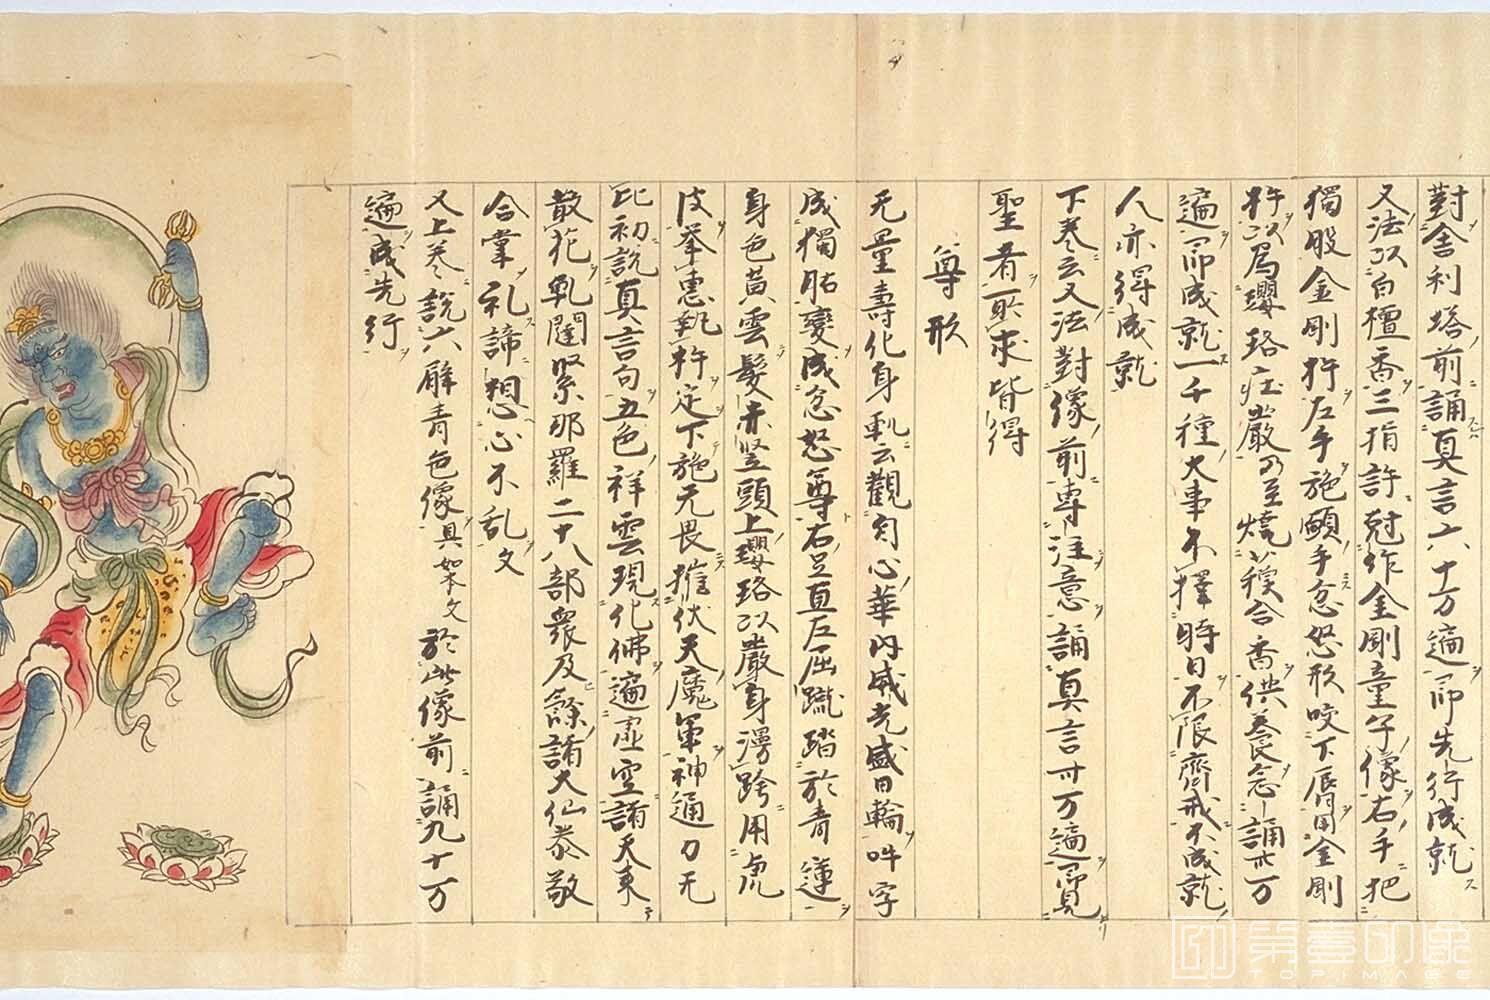 對舍利塔前誦真言六十万遍即先行成就
又法以白檀香三指許尅作金剛童子像右手把
獨股金剛杵左手施願手忿怒形咬下脣用金剛
杵以為瓔珞庄嚴乃至燒穫合香供養念誦卅万
遍即成就一千種大事不擇時日不限齊戒不成就
人亦得成就
下卷云又法對像前專注意誦真言卅万遍即見
聖者所求皆得
尊形
无量壽化身軌云觀自心華內威光盛日輪吽字
成獨股變成忿怒尊右足直左屈蹴踏於青蓮
身色黃雲髮赤竪頭上瓔珞以嚴身湯跨用虎
皮举惠執杵定下施无畏摧伏天魔軍神通力无
比初說真言句五色祥雲現化佛遍虛空諸天來
散花乹闥緊那羅二十八部衆及餘諸大仙恭敬
合掌礼諦想心不乱文
又上卷說六臂青色像具如本文於此像前誦九十万
遍成先行
第壹印象
TOPIMAGE